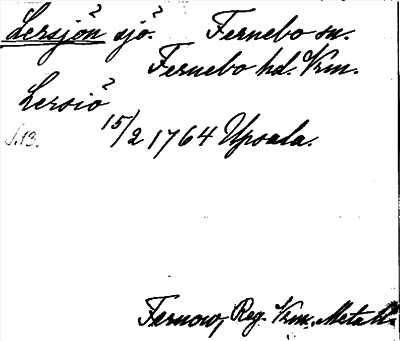 Lersjön? sjö? Fernebo sn.
Fernebo hd. Vrm.
Lersiö?
s. 13. 15/2 1764 Upsala.
Fernow, Reg. Vrm. Metall.